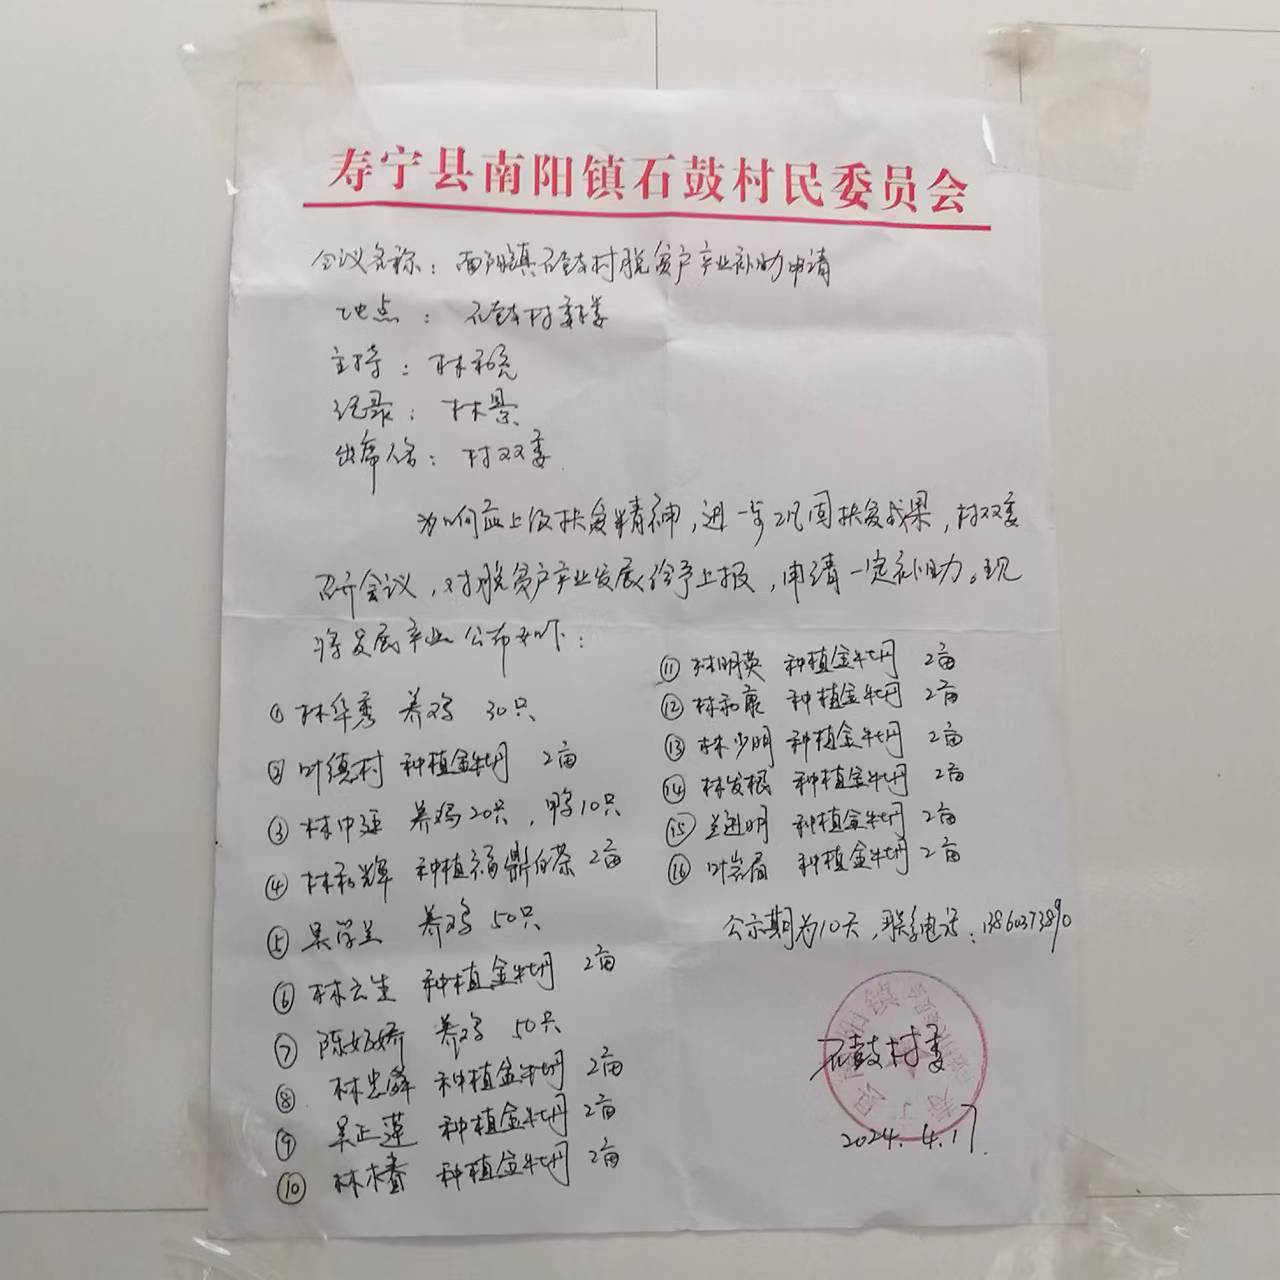 寿宁县南阳镇石鼓村民委员会
会议名称：南阳镇石鼓村脱贫户产业补助申请
地点：石鼓村委楼
主持：林
纪录：林景
出席人名：村双委
为响应上级扶贫精神，进一步巩固扶贫成果，村双委
召开会议，对脱贫户产业发展给予上报，申请一定补助。现
将发展产业公布如下：
① 林华秀 养鸡 30只
② 叶德村 种植金牡丹 2亩
③ 林中 养鸡20只，鸭10只
④ 林 辉 种植福鼎白茶 2亩
⑤ 吴学兰 养鸡 50只
⑥ 林云生 种植金牡丹 2亩
⑦ 陈 娇 养鸡 50只
⑧ 林忠 种植金牡丹 2亩
⑨ 吴正莲 种植金牡丹 2亩
⑩ 林 种植金牡丹 2亩
⑪ 林明英 种植金牡丹 2亩
⑫ 林 康 种植金牡丹 2亩
⑬ 林少明 种植金牡丹 2亩
⑭ 林发根 种植金牡丹 2亩
⑮ 兰进明 种植金牡丹 2亩
⑯ 叶岩眉 种植金牡丹 2亩
公示期为10天，联系电话：13860373890
石鼓村委
2024.4.17